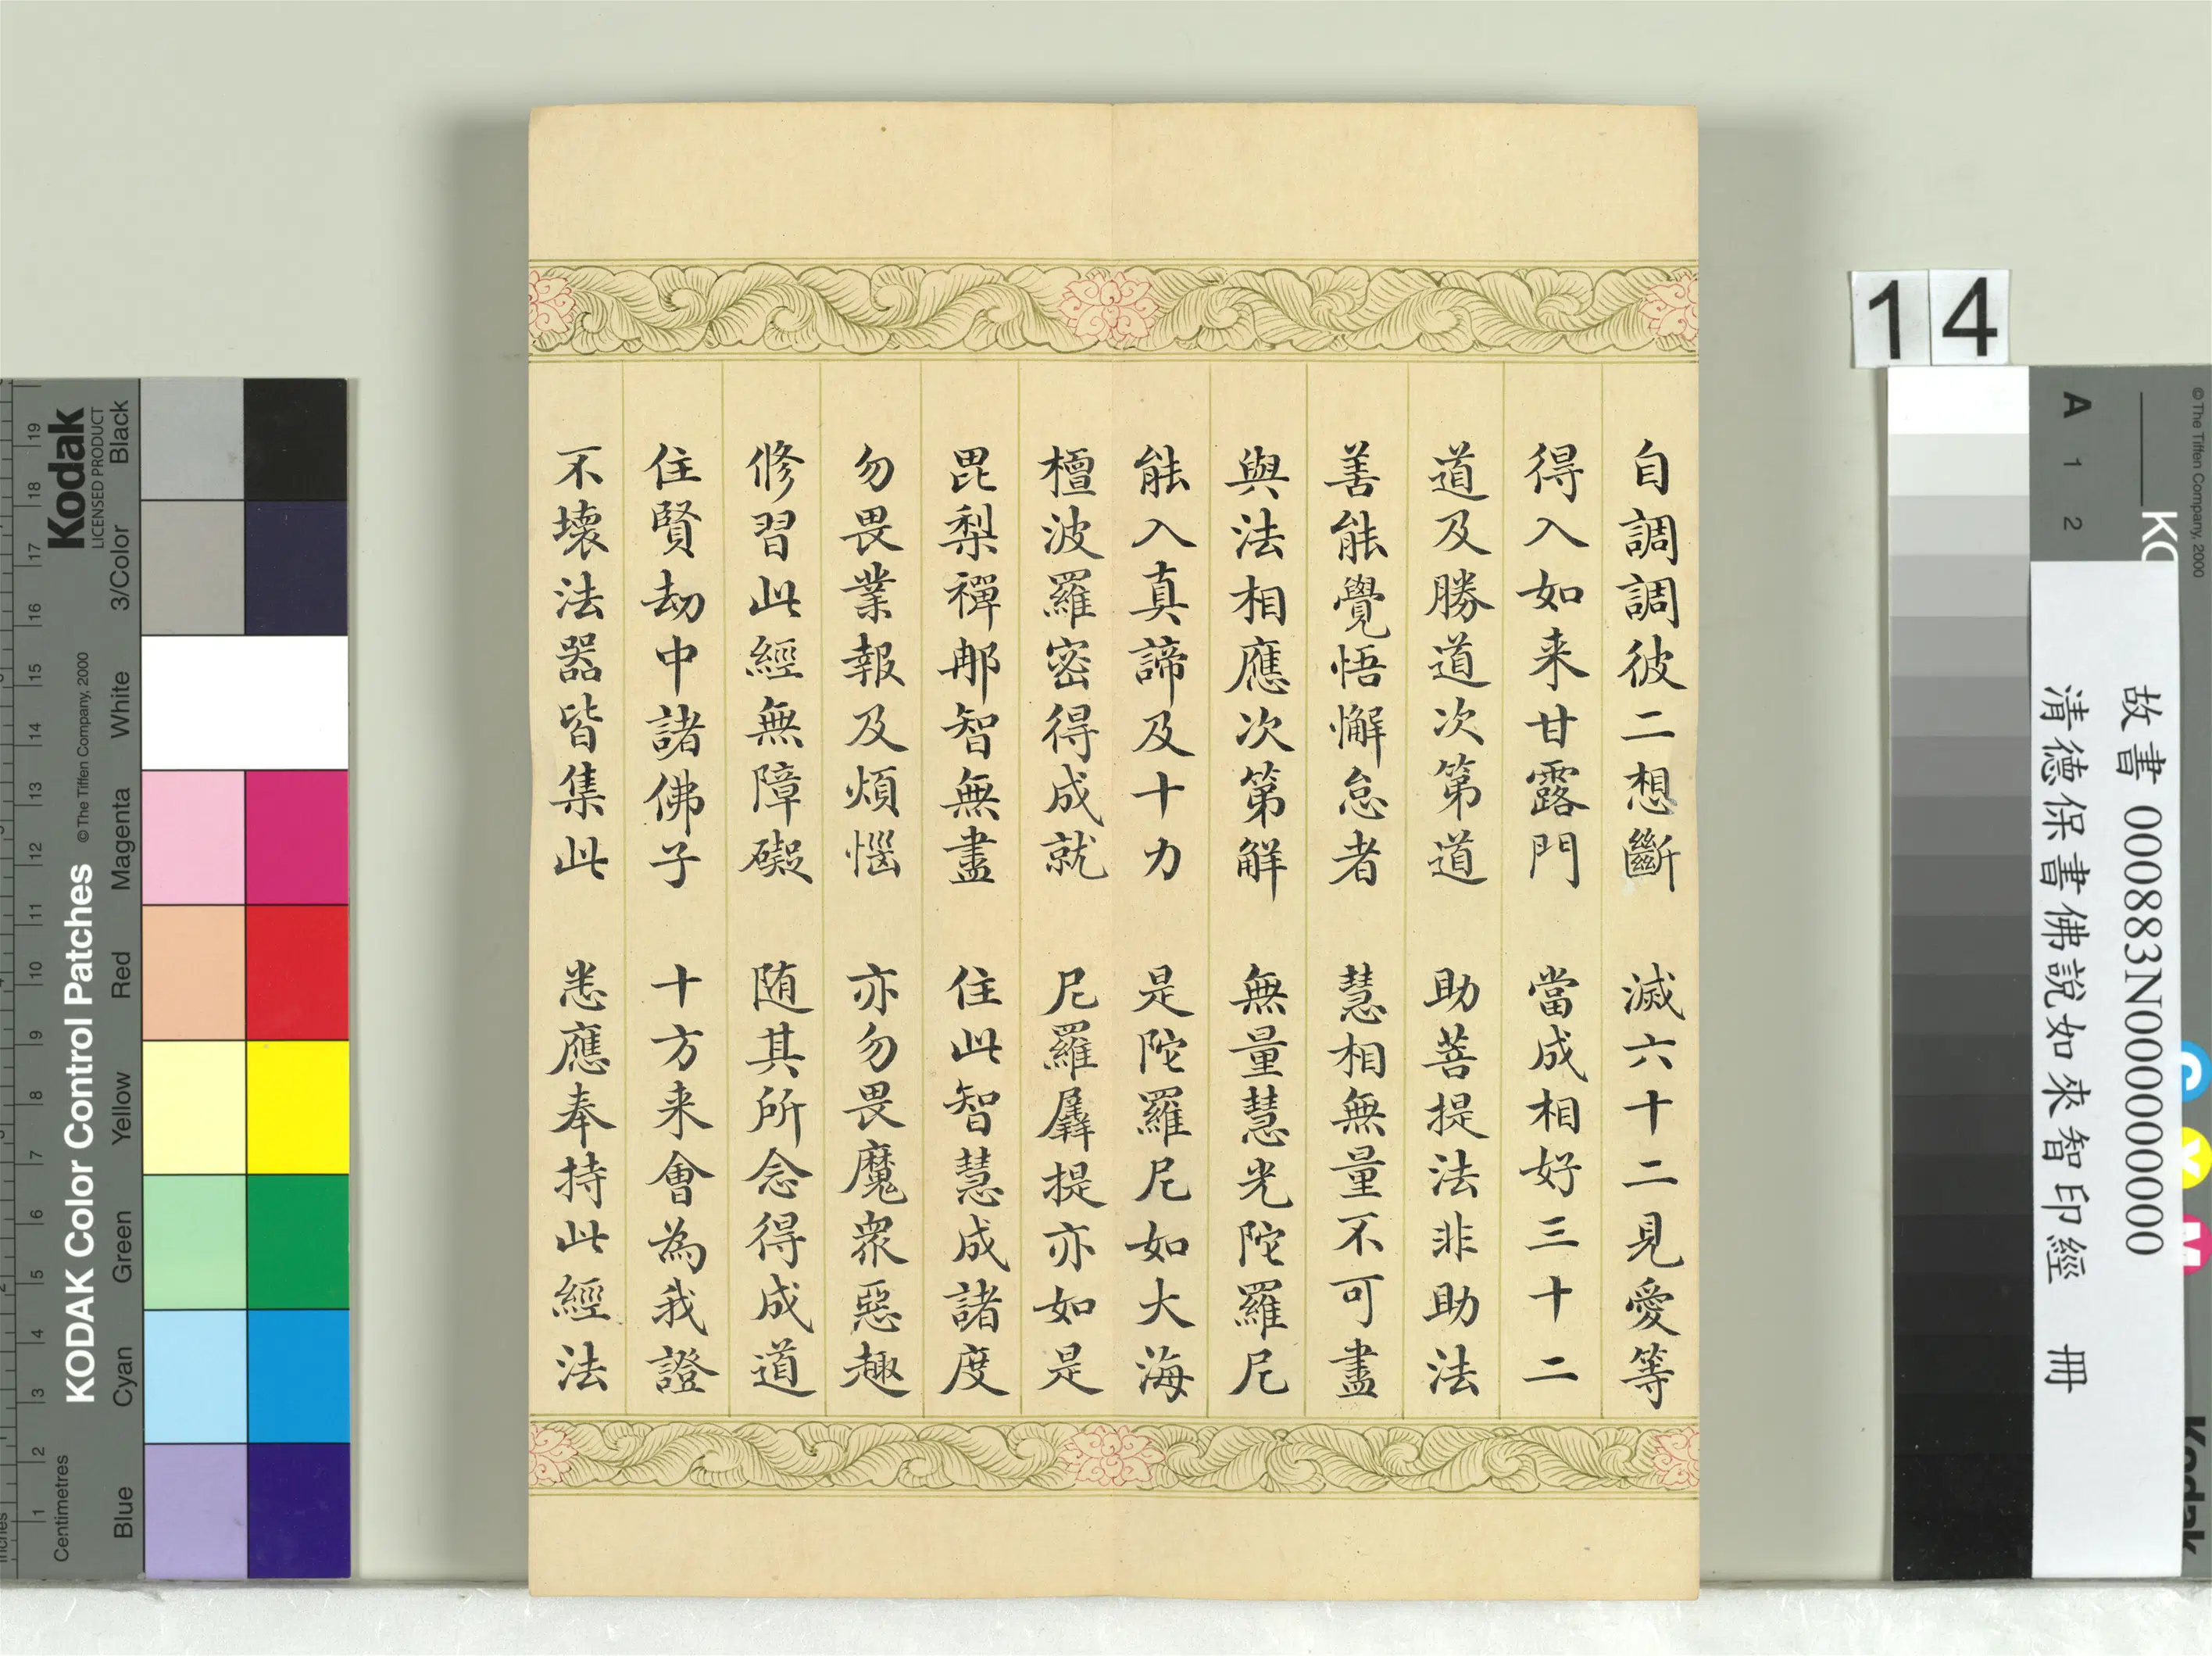 自調調彼二想斷　滅六十二見愛等
得入如来甘露門　當成相好三十二
道及勝道次第道　助菩提法非助法
善能覺悟懈怠者　慧相無量不可盡
與法相應次第解　無量慧光陀羅尼
能入真諦及十力　是陀羅尼如大海
檀波羅密得成就　尼羅羼提亦如是
毘梨禪那智無盡　住此智慧成諸度
勿畏業報及煩惱　亦勿畏魔衆惡趣
修習此經無障礙　随其所念得成道
住賢劫中諸佛子　十方来會為我證
不壞法器皆集此　悉應奉持此經法
14
故書 000883N000000000
清德保書佛說如來智印經　冊
KODAK Color Control Patches
© The Tiffen Company, 2000
Kodak
LICENSED PRODUCT
Black
3/Color
White
Magenta
Red
Yellow
Green
Cyan
Blue
Centimetres
19
18
17
16
15
14
13
12
11
10
9
8
7
6
5
4
3
2
1
© The Tiffen Company, 2000
A 1 2
Kodak
C
Y
M